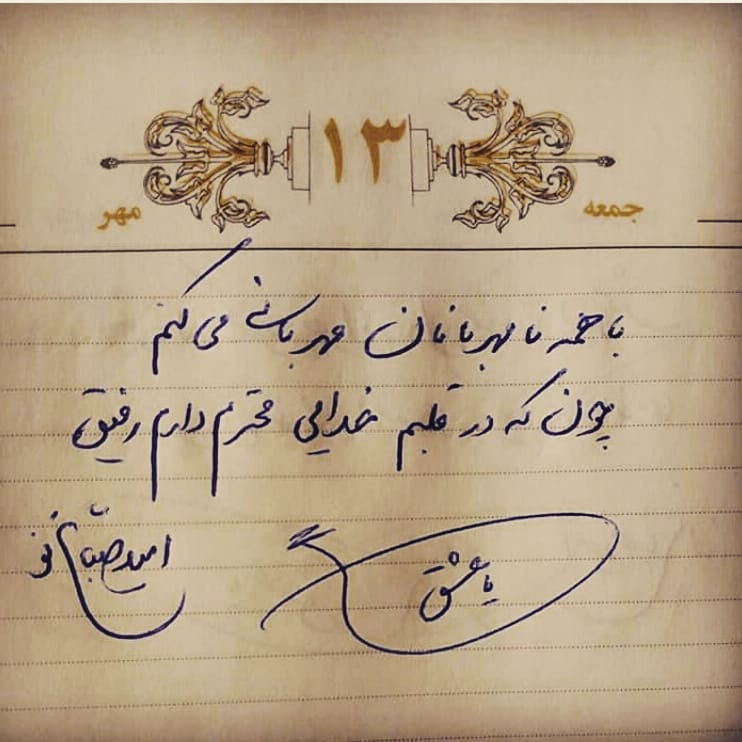 ۱۳
جمعه
مهر
با همه نامهربانان مهربانی می کنم
چون که در قلبم خدایی محترم دارم رفیق
یا عشق
امید صباغ نو